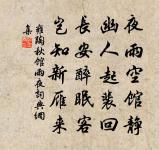 夜雨空馆静
幽人起裴回
长安醉眠客
岂知新雁来
雍陶秋馆雨夜词典网
集